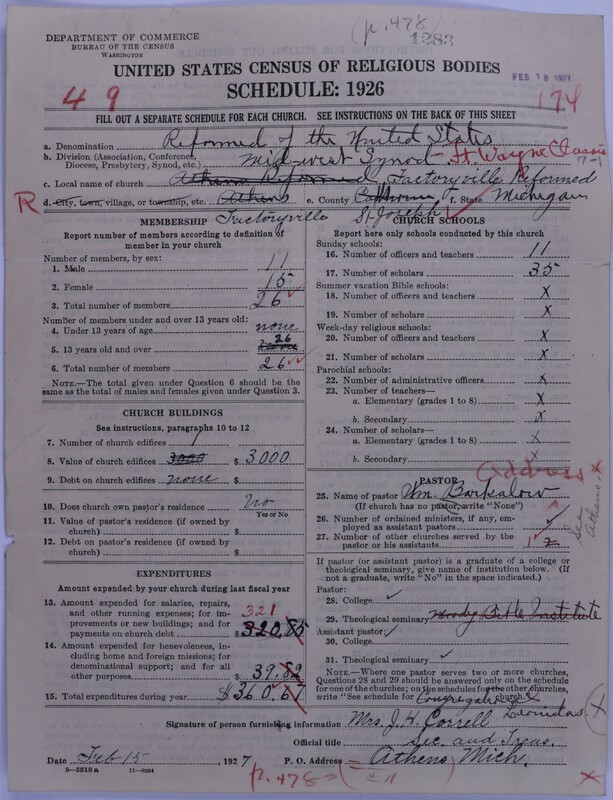 (p. 478)
1283
DEPARTMENT OF COMMERCE
BUREAU OF THE CENSUS
WASHINGTON
UNITED STATES CENSUS OF RELIGIOUS BODIES
SCHEDULE: 1926
FEB 18 1927
49
174
FILL OUT A SEPARATE SCHEDULE FOR EACH CHURCH. SEE INSTRUCTIONS ON THE BACK OF THIS SHEET
a. Denomination Reformed of the United States
b. Division (Association, Conference, Diocese, Presbytery, Synod, etc.) Mid-west Synod - Ft. Wayne Classis
7-1
c. Local name of church Athens Reformed Factoryville Reformed
R
d. City, town, village, or township, etc. Athens e. County Calhoun f. State Michigan
Factoryville St. Joseph
MEMBERSHIP
Report number of members according to definition of member in your church
Number of members, by sex:
1. Male 11
2. Female 15
3. Total number of members 26
Number of members under and over 13 years old:
4. Under 13 years of age none
5. 13 years old and over 26
6. Total number of members 26
NOTE.—The total given under Question 6 should be the same as the total of males and females given under Question 3.
CHURCH BUILDINGS
See instructions, paragraphs 10 to 12
7. Number of church edifices 1
8. Value of church edifices 3000 $ 3000
9. Debt on church edifices none $
10. Does church own pastor's residence? No
Yes or No
11. Value of pastor's residence (if owned by church) $
12. Debt on pastor's residence (if owned by church) $
EXPENDITURES
Amount expended by your church during last fiscal year
13. Amount expended for salaries, repairs, and other running expenses; for improvements or new buildings; and for payments on church debt $ 320.85
321
14. Amount expended for benevolences, including home and foreign missions; for denominational support; and for all other purposes $ 39.82
15. Total expenditures during year $ 360.67
CHURCH SCHOOLS
Report here only schools conducted by this church
Sunday schools:
16. Number of officers and teachers 11
17. Number of scholars 35
Summer vacation Bible schools:
18. Number of officers and teachers X
19. Number of scholars X
Week-day religious schools:
20. Number of officers and teachers X
21. Number of scholars X
Parochial schools:
22. Number of administrative officers X
23. Number of teachers—
a. Elementary (grades 1 to 8) X
b. Secondary X
24. Number of scholars—
a. Elementary (grades 1 to 8) X
b. Secondary X
Address
PASTOR
25. Name of pastor Wm. Barkalow
(If church has no pastor, write "None")
26. Number of ordained ministers, if any, employed as assistant pastors
27. Number of other churches served by the pastor or his assistants 1 2
Athens
If pastor (or assistant pastor) is a graduate of a college or theological seminary, give name of institution below. (If not a graduate, write "No" in the space indicated.)
Pastor:
28. College
29. Theological seminary Moody Bible Institute
Assistant pastor:
30. College
31. Theological seminary
NOTE.—Where one pastor serves two or more churches, Questions 28 and 29 should be answered only on the schedule for one of the churches; on the schedules for the other churches, write "See schedule for Congregational
Leonidas church
Signature of person furnishing information Mrs. J. H. Correll
Official title Sec. and Treas.
Date Feb 15 1927 P. O. Address Athens Mich.
8—5518a 11—9054
p. 478=